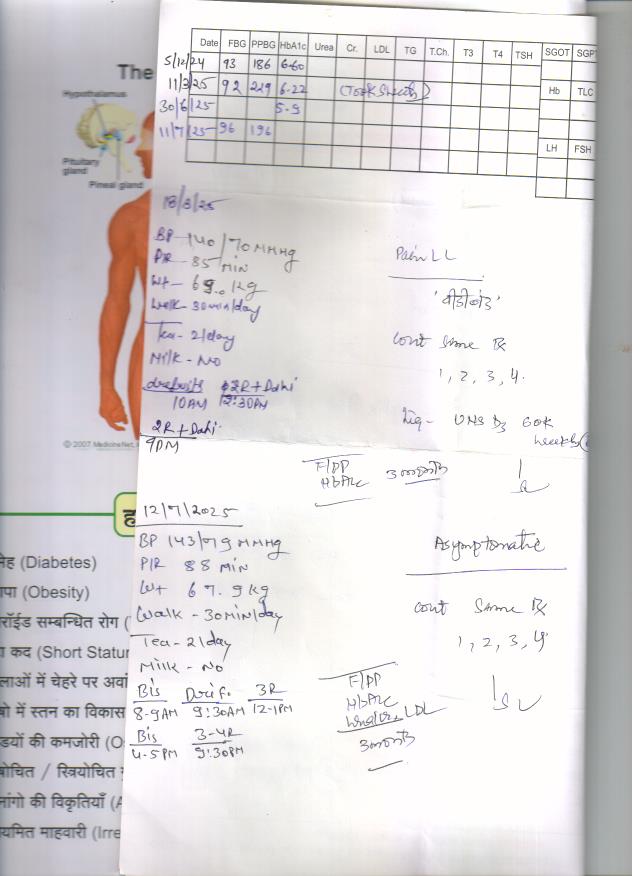 Date FBG PPBG HbA1c Urea Cr. LDL TG T.Ch. T3 T4 TSH SGOT SGPT
5/12/24 93 186 6.60
11/3/25 92 229 6.22
Hb TLC
30/6/25 5.9
11/7/25 96 196
LH FSH
The
Hypothalamus
Pituitary
gland
Pineal gland
© 2007 MedicineNet, I
18/3/25
BP - 140/70 MMHg
P/R - 85 MIN
Wt - 69.0 Kg
Walk - 30min/day
Tea - 2/day
Milk - No
2R + Dahi
10AM 12:30PM
2R + Dahi
9PM
Pain LL
Cont Same Rx
1, 2, 3, 4.
UNS D3 60K
F/PP
HbA1c
3 months
12/7/2025
BP 143/79 MMHg
P/R 88 MIN
Wt 67.9 kg
Walk - 30min/day
Tea - 2/day
Milk - No
Bis 3R
8-9AM 9:30AM 12-1PM
Bis 3-4R
4-5PM 9:30PM
Asymptomatic
Cont Same Rx
1, 2, 3, 4
F/PP
HbA1c
LDL
3 months
मेह (Diabetes)
पा (Obesity)
रॉईड सम्बन्धित रोग (
कद (Short Statur
लाओं में चेहरे पर अवां
में स्तन का विकास
डियों की कमजोरी (O
बोचित / स्त्रियोचित
नांगो की विकृतियाँ (A
यमित माहवारी (Irre